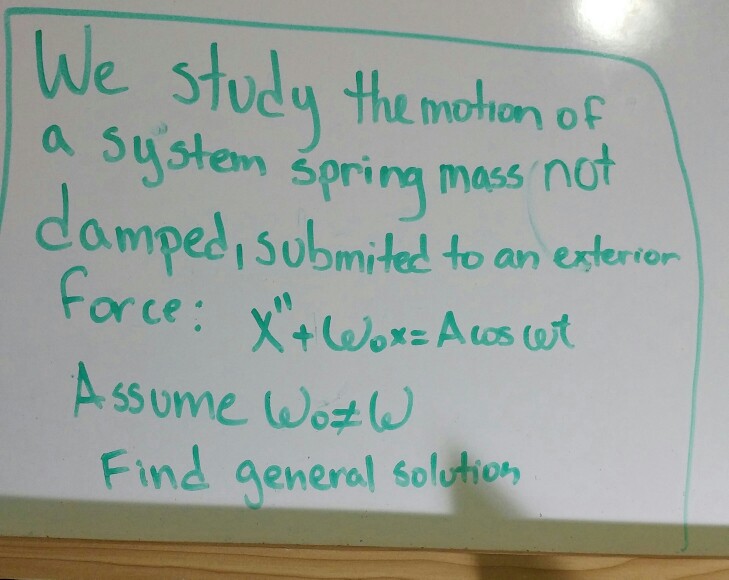 We study the motion of
a system spring mass not
damped, submited to an exterior
force: x'' + ω₀x = A cos ωt
Assume ω₀ ≠ ω
Find general solution